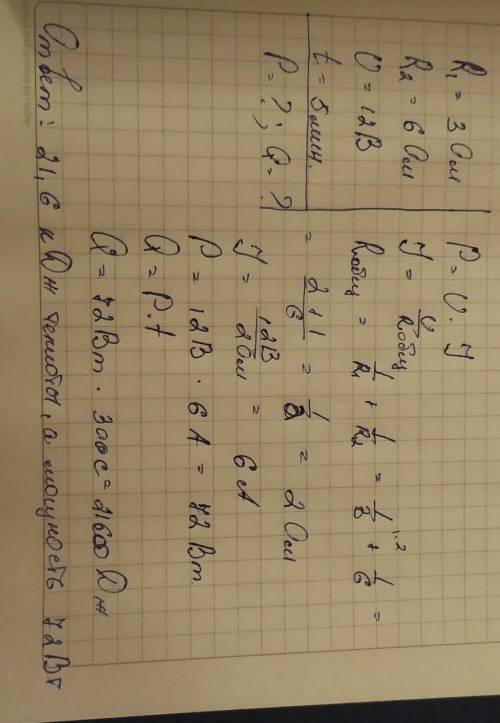 R₁ = 3 Ом
R₂ = 6 Ом
U = 12 В
t = 5 мин.
P = ?; Q = ?
P = U · I
I = U/Rобщ
Rобщ = 1/R₁ + 1/R₂ = 1/3 ^1·2 + 1/6 =
= 2+1/6 = 1/2 = 2 Ом
I = 12В/2Ом = 6 А
P = 12 В · 6 А = 72 Вт
Q = P · t
Q = 72 Вт · 300 с = 21600 Дж
Ответ: 21,6 кДж теплоты, а мощность 72 Вт